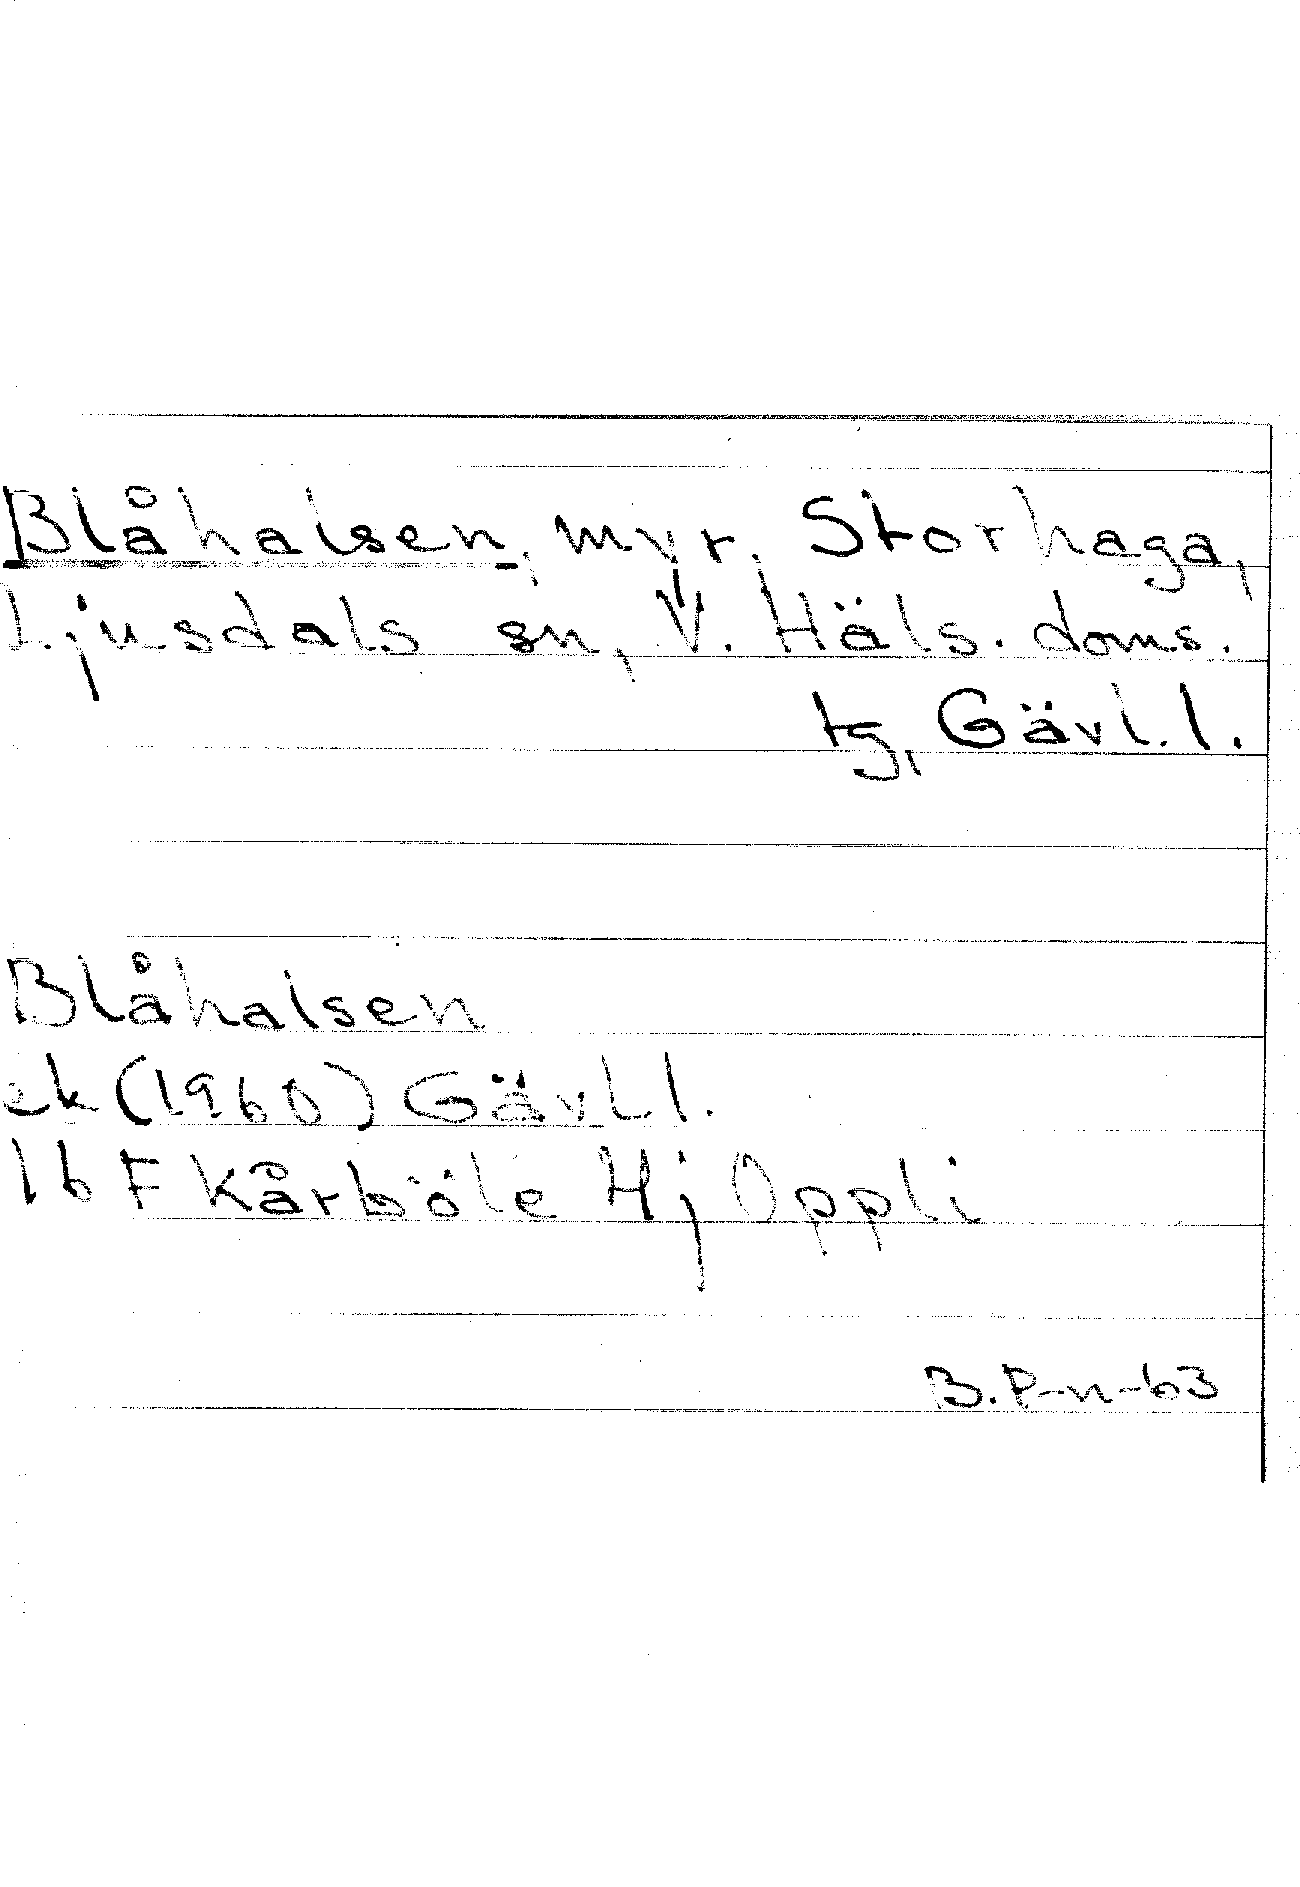 Blåhalsen, myr, Storhaga,
Ljusdals sn, V. Häls. doms.
tg, Gävl. l.
Blåhalsen
ek (1960) Gävl l.
16 F Kårböle Hj Oppli
B. P-n-63